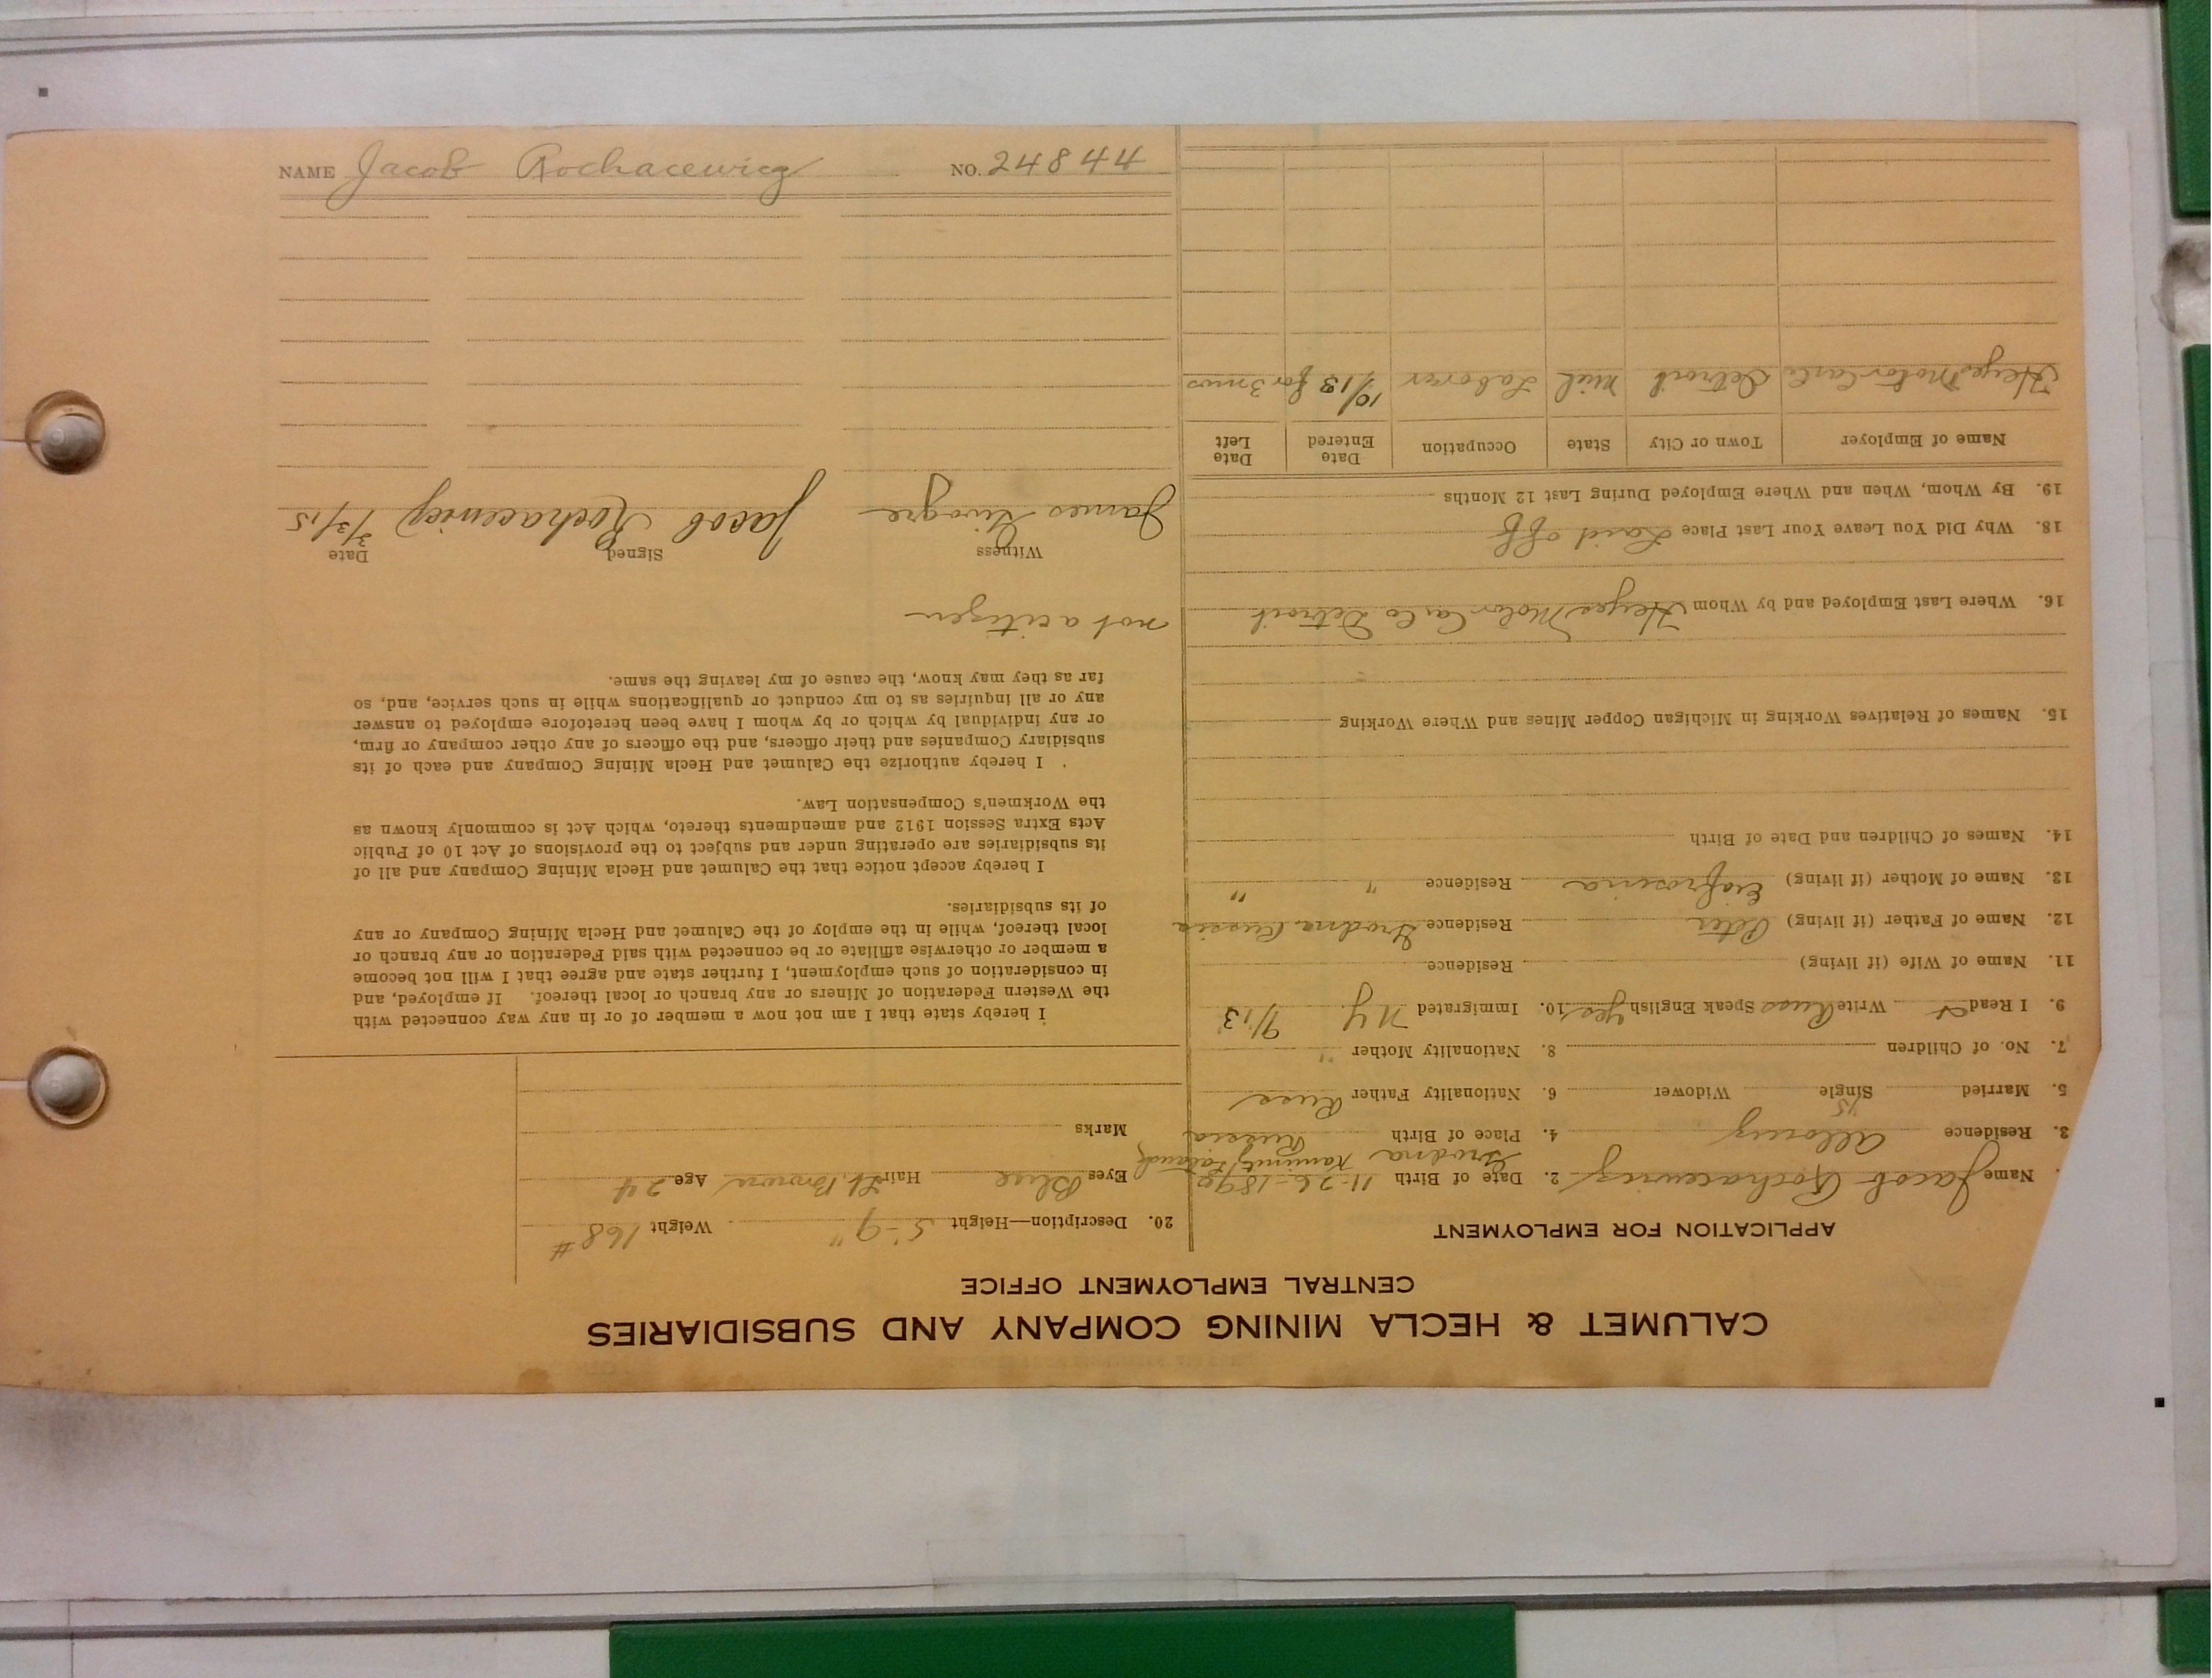 CALUMET & HECLA MINING COMPANY AND SUBSIDIARIES
CENTRAL EMPLOYMENT OFFICE
APPLICATION FOR EMPLOYMENT
Name Jacob Rochacewicz 2. Date of Birth 11-26-1890
Grodna
3. Residence Allouez 4. Place of Birth Russia
5. Married Single Widower 6. Nationality Father Russ
7. No. of Children 8. Nationality Mother "
9. I Read & Write Russ Speak English yes 10. Immigrated N.Y. 9/13
11. Name of Wife (if living) Residence
12. Name of Father (if living) Peter Residence Grodna Russia
13. Name of Mother (if living) Residence " "
14. Names of Children and Date of Birth
15. Names of Relatives Working in Michigan Copper Mines and Where Working
16. Where Last Employed and by Whom Heyes Motor Car Co Detroit
18. Why Did You Leave Your Last Place Laid off
19. By Whom, When and Where Employed During Last 12 Months
Name of Employer Town or City State Occupation Date Entered Date Left
Heyes Motor Car Co Detroit Mich Laborer 10/13 for 3 mos
20. Description—Height 5'-9" Weight 168 #
Eyes Blue Hair Lt. Brown Age 24
Marks
I hereby state that I am not now a member of or in any way connected with
the Western Federation of Miners or any branch or local thereof. If employed, and
in consideration of such employment, I further state and agree that I will not become
a member or otherwise affiliate or be connected with said Federation or any branch or
local thereof, while in the employ of the Calumet and Hecla Mining Company or any
of its subsidiaries.
I hereby accept notice that the Calumet and Hecla Mining Company and all of
its subsidiaries are operating under and subject to the provisions of Act 10 of Public
Acts Extra Session 1912 and amendments thereto, which Act is commonly known as
the Workmen's Compensation Law.
I hereby authorize the Calumet and Hecla Mining Company and each of its
subsidiary Companies and their officers, and the officers of any other company or firm,
or any individual by which or by whom I have been heretofore employed to answer
any or all inquiries as to my conduct or qualifications while in such service, and, so
far as they may know, the cause of my leaving the same.
not a citizen
Witness Signed Date
James Jacob Rochacewicz 3/3/15
NAME Jacob Rochacewicz NO. 24844